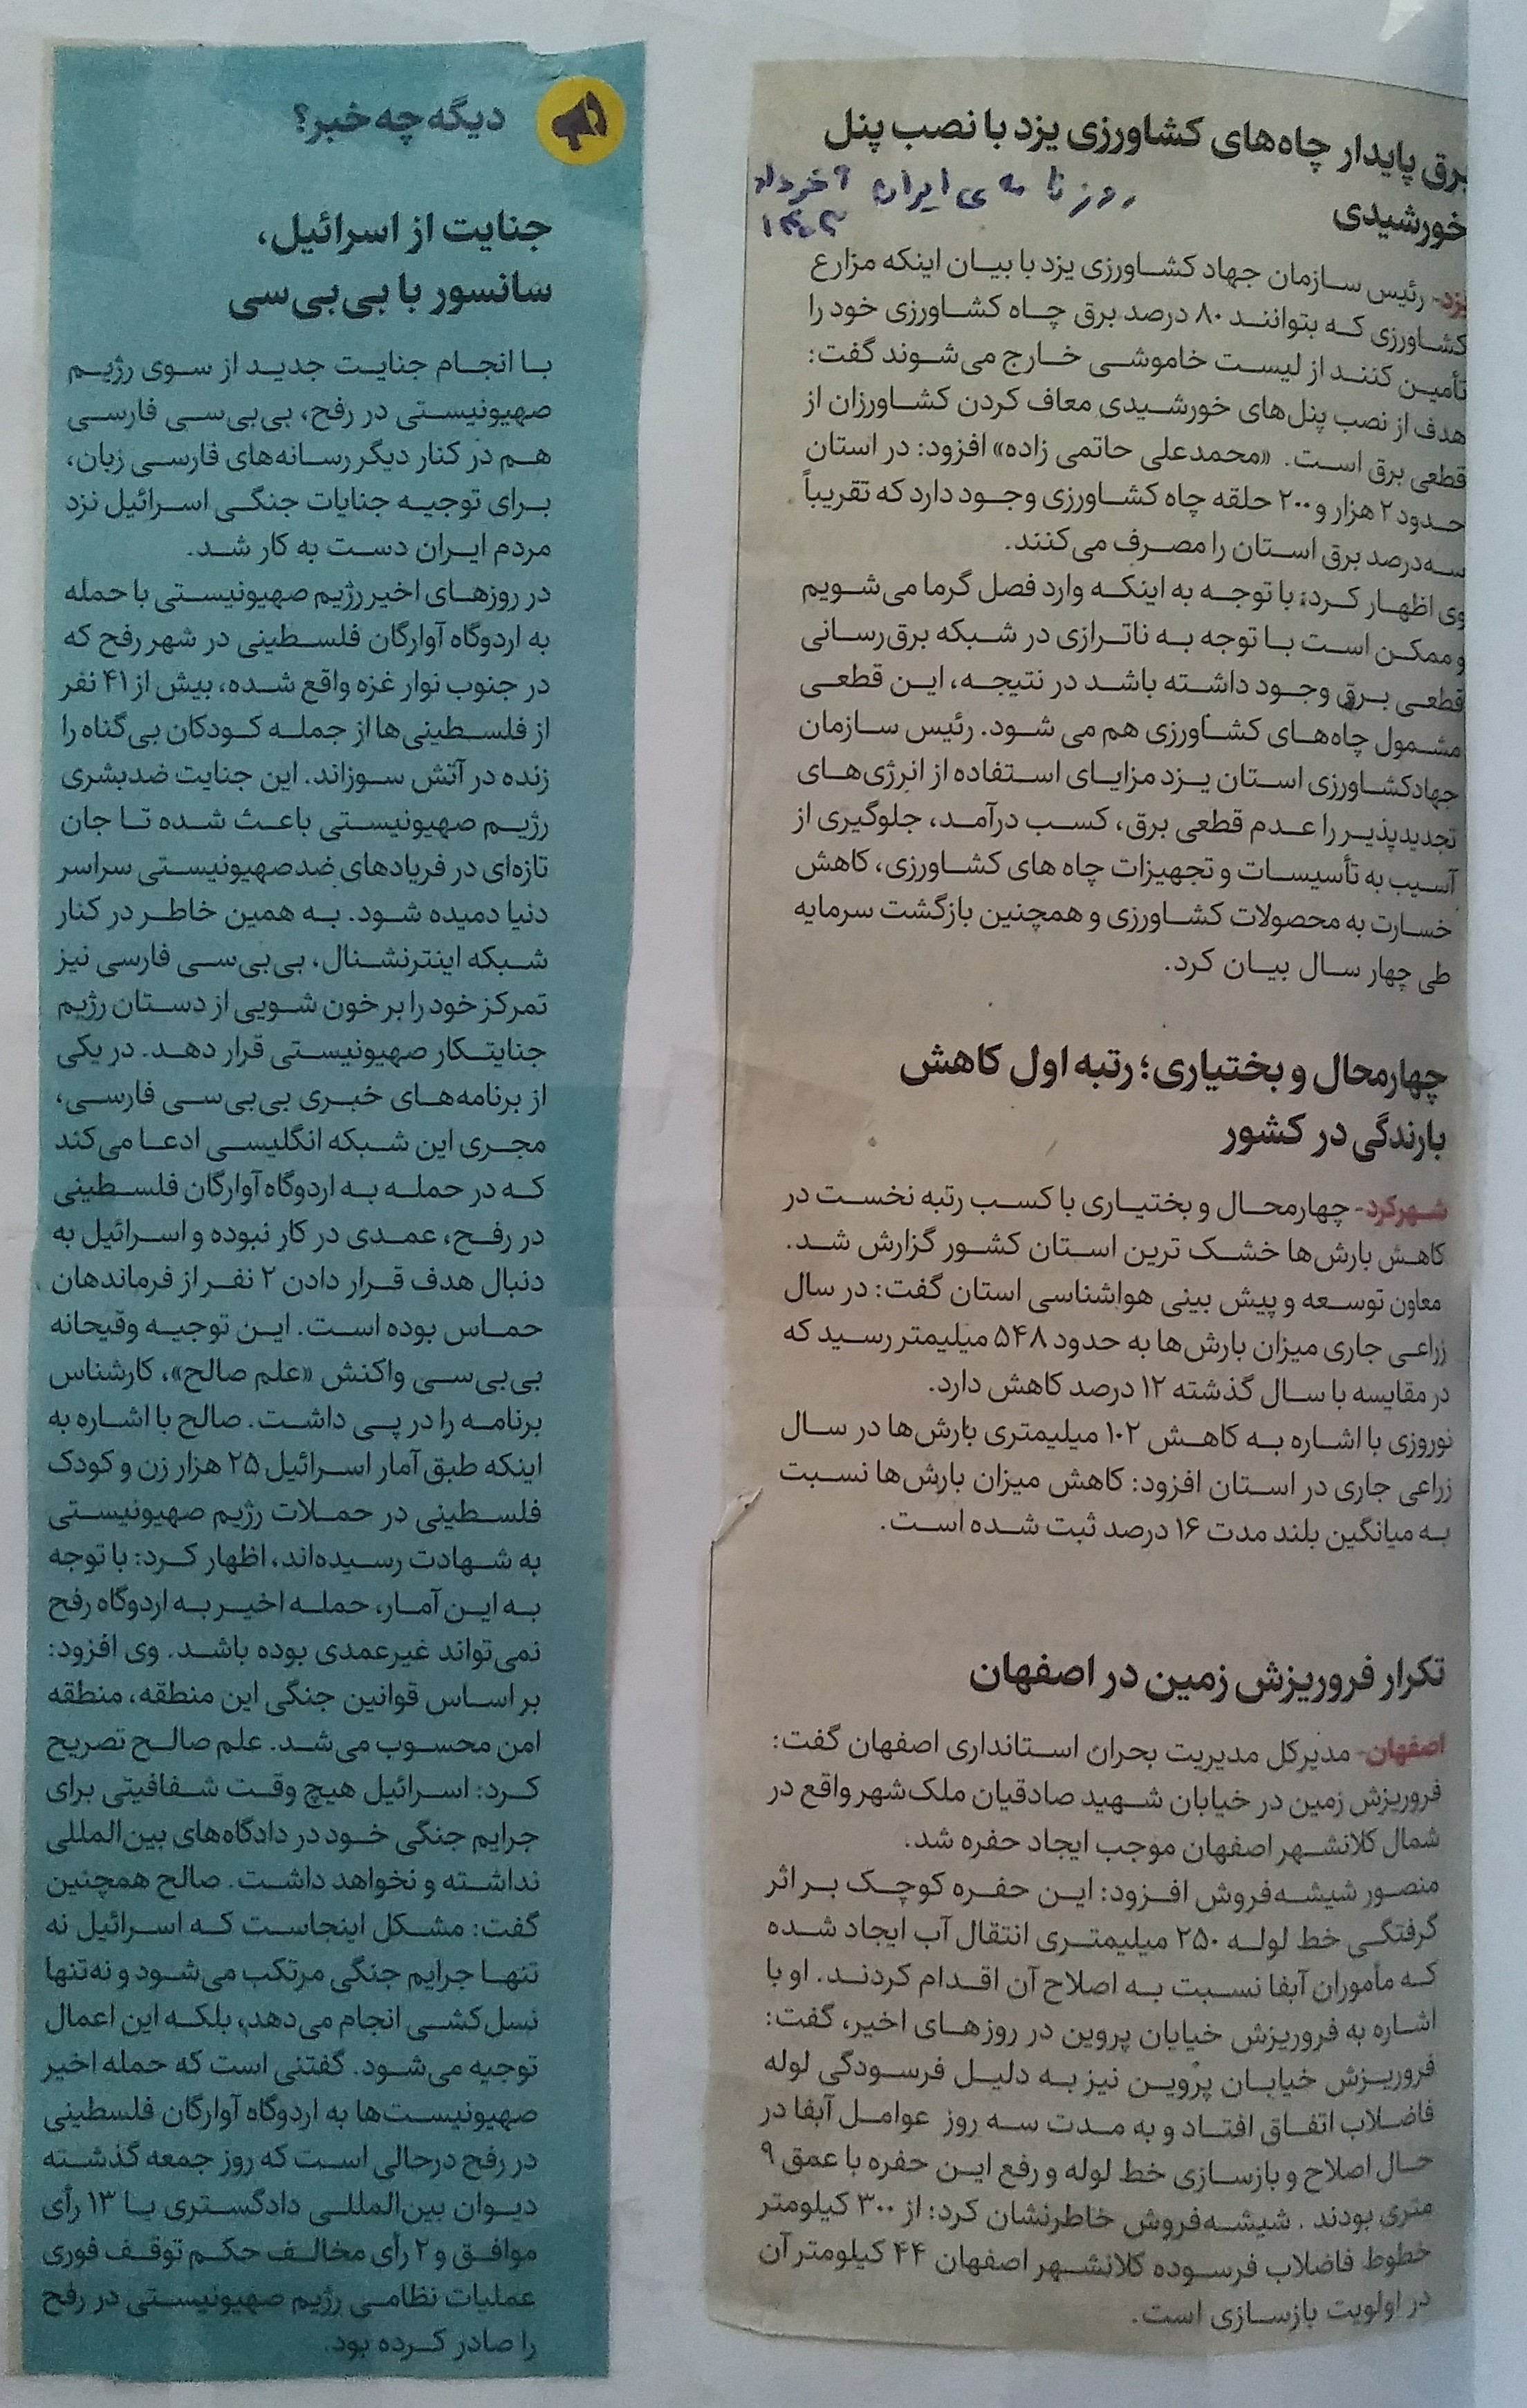 برق پایدار چاه‌های کشاورزی یزد با نصب پنل
خورشیدی
روزنامه‌ی ایران ۹ خرداد
۱۴۰۳
یزد- رئیس سازمان جهاد کشاورزی یزد با بیان اینکه مزارع
کشاورزی که بتوانند ۸۰ درصد برق چاه کشاورزی خود را
تأمین کنند از لیست خاموشی خارج می‌شوند گفت:
هدف از نصب پنل‌های خورشیدی معاف کردن کشاورزان از
قطعی برق است. «محمدعلی حاتمی زاده» افزود: در استان
حدود ۲ هزار و ۲۰۰ حلقه چاه کشاورزی وجود دارد که تقریباً
سه‌درصد برق استان را مصرف می‌کنند.
وی اظهار کرد: با توجه به اینکه وارد فصل گرما می‌شویم
و ممکن است با توجه به ناترازی در شبکه برق‌رسانی
قطعی برق وجود داشته باشد در نتیجه، این قطعی
مشمول چاه‌های کشاورزی هم می شود. رئیس سازمان
جهادکشاورزی استان یزد مزایای استفاده از انرژی‌های
تجدیدپذیر را عدم قطعی برق، کسب درآمد، جلوگیری از
آسیب به تأسیسات و تجهیزات چاه های کشاورزی، کاهش
خسارت به محصولات کشاورزی و همچنین بازگشت سرمایه
طی چهار سال بیان کرد.
چهارمحال و بختیاری؛ رتبه اول کاهش
بارندگی در کشور
شهرکرد- چهارمحال و بختیاری با کسب رتبه نخست در
کاهش بارش‌ها خشک ترین استان کشور گزارش شد.
معاون توسعه و پیش بینی هواشناسی استان گفت: در سال
زراعی جاری میزان بارش‌ها به حدود ۵۴۸ میلیمتر رسید که
در مقایسه با سال گذشته ۱۲ درصد کاهش دارد.
نوروزی با اشاره به کاهش ۱۰۲ میلیمتری بارش‌ها در سال
زراعی جاری در استان افزود: کاهش میزان بارش‌ها نسبت
به میانگین بلند مدت ۱۶ درصد ثبت شده است.
تکرار فروریزش زمین در اصفهان
اصفهان- مدیرکل مدیریت بحران استانداری اصفهان گفت:
فروریزش زمین در خیابان شهید صادقیان ملک‌شهر واقع در
شمال کلانشهر اصفهان موجب ایجاد حفره شد.
منصور شیشه‌فروش افزود: این حفره کوچک بر اثر
گرفتگی خط لوله ۲۵۰ میلیمتری انتقال آب ایجاد شده
که مأموران آبفا نسبت به اصلاح آن اقدام کردند. او با
اشاره به فروریزش خیابان پروین در روزهای اخیر، گفت:
فروریزش خیابان پروین نیز به دلیل فرسودگی لوله
فاضلاب اتفاق افتاد و به مدت سه روز عوامل آبفا در
حال اصلاح و بازسازی خط لوله و رفع این حفره با عمق ۹
متری بودند . شیشه‌فروش خاطرنشان کرد: از ۳۰۰ کیلومتر
خطوط فاضلاب فرسوده کلانشهر اصفهان ۴۴ کیلومتر آن
در اولویت بازسازی است.
دیگه چه خبر؟
جنایت از اسرائیل،
سانسور با بی‌بی‌سی
با انجام جنایت جدید از سوی رژیم
صهیونیستی در رفح، بی‌بی‌سی فارسی
هم در کنار دیگر رسانه‌های فارسی زبان،
برای توجیه جنایات جنگی اسرائیل نزد
مردم ایران دست به کار شد.
در روزهای اخیر رژیم صهیونیستی با حمله
به اردوگاه آوارگان فلسطینی در شهر رفح که
در جنوب نوار غزه واقع شده، بیش از ۴۱ نفر
از فلسطینی‌ها از جمله کودکان بی‌گناه را
زنده در آتش سوزاند. این جنایت ضدبشری
رژیم صهیونیستی باعث شده تا جان
تازه‌ای در فریادهای ضدصهیونیستی سراسر
دنیا دمیده شود. به همین خاطر در کنار
شبکه اینترنشنال، بی‌بی‌سی فارسی نیز
تمرکز خود را بر خون شویی از دستان رژیم
جنایتکار صهیونیستی قرار دهد. در یکی
از برنامه‌های خبری بی‌بی‌سی فارسی،
مجری این شبکه انگلیسی ادعا می‌کند
که در حمله به اردوگاه آوارگان فلسطینی
در رفح، عمدی در کار نبوده و اسرائیل به
دنبال هدف قرار دادن ۲ نفر از فرماندهان
حماس بوده است. این توجیه وقیحانه
بی‌بی‌سی واکنش «علم صالح»، کارشناس
برنامه را در پی داشت. صالح با اشاره به
اینکه طبق آمار اسرائیل ۲۵ هزار زن و کودک
فلسطینی در حملات رژیم صهیونیستی
به شهادت رسیده‌اند، اظهار کرد: با توجه
به این آمار، حمله اخیر به اردوگاه رفح
نمی‌تواند غیرعمدی بوده باشد. وی افزود:
بر اساس قوانین جنگی این منطقه، منطقه
امن محسوب می‌شد. علم صالح تصریح
کرد: اسرائیل هیچ وقت شفافیتی برای
جرایم جنگی خود در دادگاه‌های بین‌المللی
نداشته و نخواهد داشت. صالح همچنین
گفت: مشکل اینجاست که اسرائیل نه
تنها جرایم جنگی مرتکب می‌شود و نه‌تنها
نسل‌کشی انجام می‌دهد، بلکه این اعمال
توجیه می‌شود. گفتنی است که حمله اخیر
صهیونیست‌ها به اردوگاه آوارگان فلسطینی
در رفح درحالی است که روز جمعه گذشته
دیوان بین‌المللی دادگستری با ۱۳ رأی
موافق و ۲ رأی مخالف حکم توقف فوری
عملیات نظامی رژیم صهیونیستی در رفح
را صادر کرده بود.